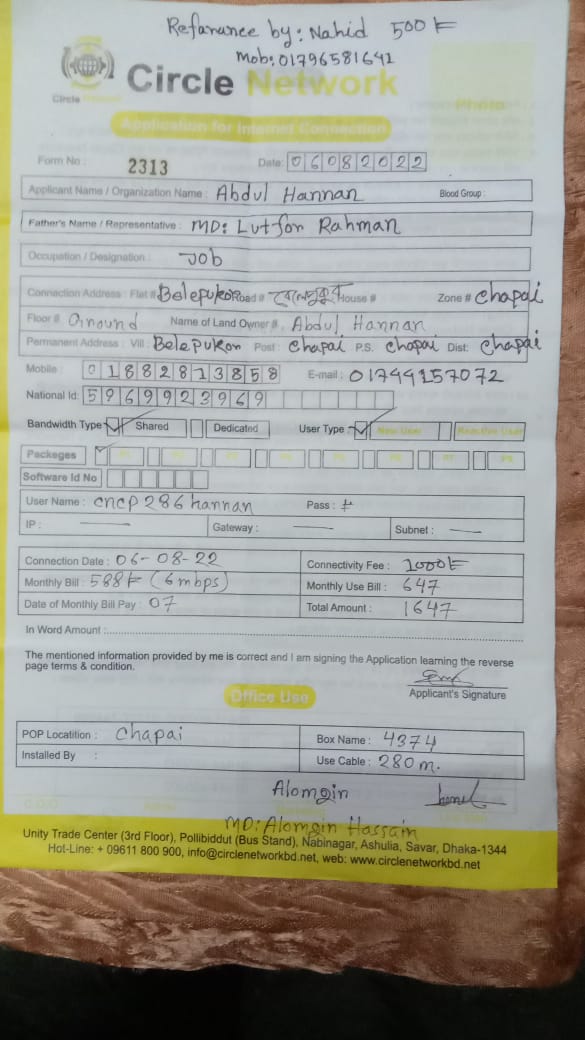 Refarance by: Nahid 500 ৳
Mob: 01796581641
Circle Network
Circle Network
Photo
Application for Internet Connection
Form No : 2313 Date: 06082022
Applicant Name / Organization Name : Abdul Hannan Blood Group :
Father's Name / Representative : MD: Lutfor Rahman
Occupation / Designation : Job
Connection Address : Flat # Belepukor Road # House # Zone # Chapai
Floor # Ground Name of Land Owner # Abdul Hannan
Permanent Address : Vill : Belepukor Post : Chapai P.S. Chapai Dist: Chapai
Mobile : 01882813858 E-mail : 01749157072
National Id: 5969923969
Bandwidth Type Shared Dedicated User Type New User Reactive User
Packeges
Software Id No
User Name : cncp286hannan Pass : #
IP : — Gateway : — Subnet : —
Connection Date : 06-08-22 Connectivity Fee : 1000৳
Monthly Bill : 588৳ (6mbps) Monthly Use Bill : 647
Date of Monthly Bill Pay : 07 Total Amount : 1647
In Word Amount :
The mentioned information provided by me is correct and I am signing the Application learning the reverse
page terms & condition.
Applicant's Signature
Office Use
POP Locatition : Chapai Box Name : 4374
Installed By : Use Cable : 280m.
Alomgin
MD: Alomgin Hassain
Unity Trade Center (3rd Floor), Pollibiddut (Bus Stand), Nabinagar, Ashulia, Savar, Dhaka-1344
Hot-Line: + 09611 800 900, info@circlenetworkbd.net, web: www.circlenetworkbd.net